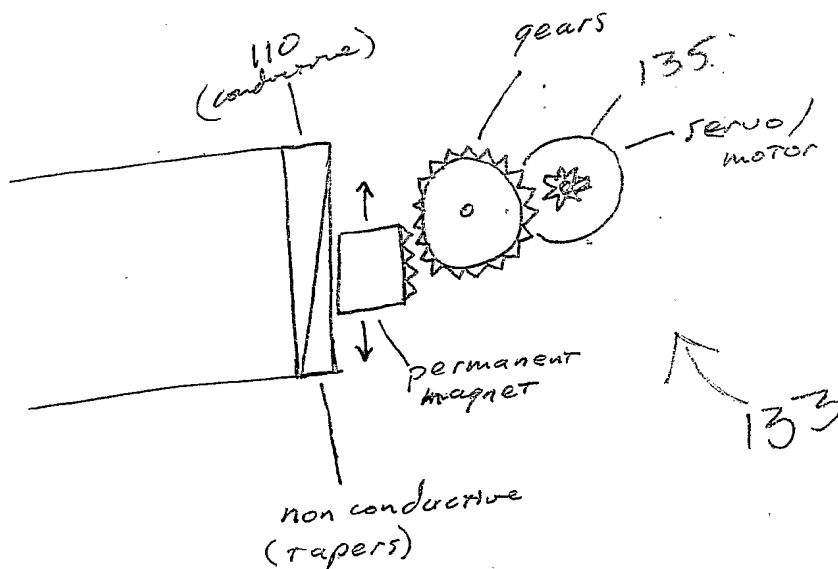 110
(conductive)
gears
135
servo/
motor
permanent
magnet
133
non conductive
(tapers)